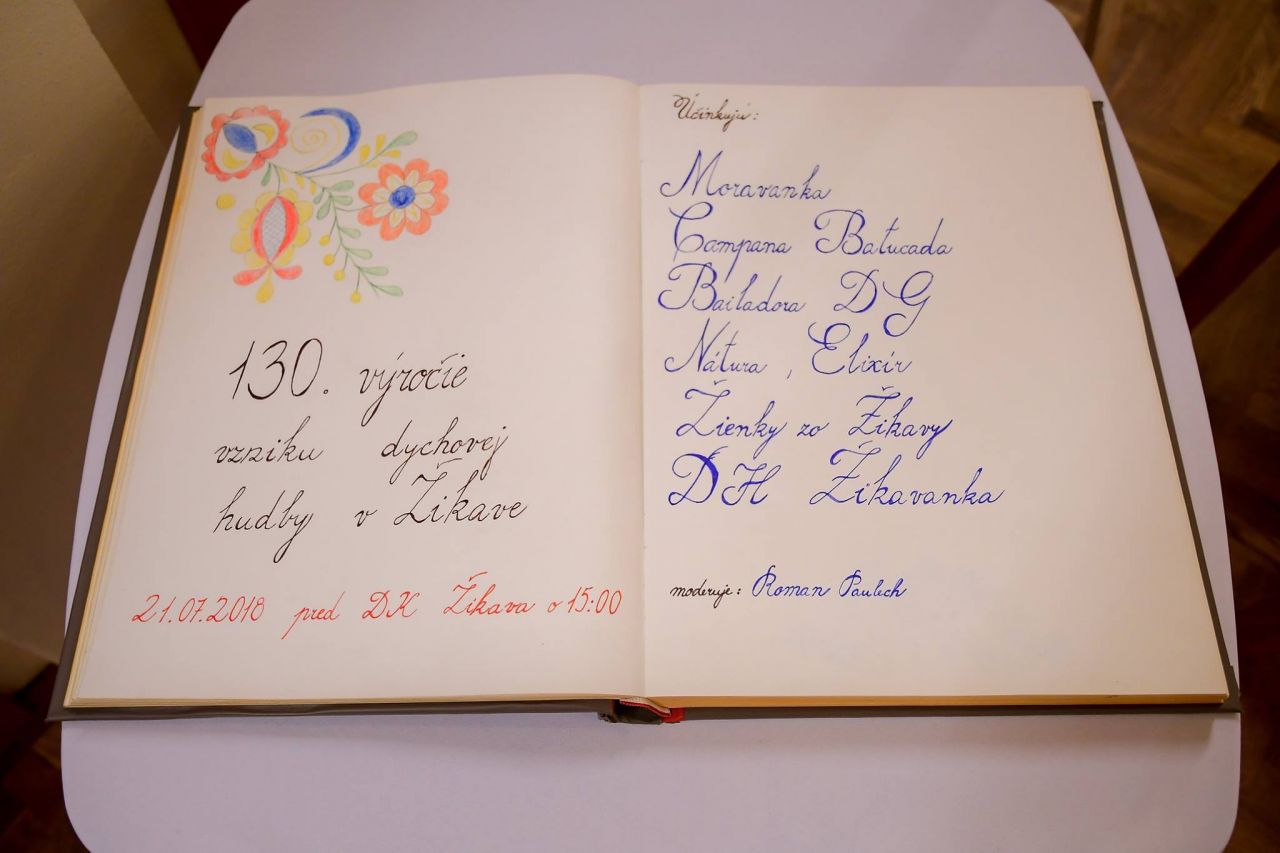 130. výročie
vzniku dychovej
hudby v Žikave
21.07.2018 pred DK Žikava o 15:00
Účinkujú:
Moravanka
Campana Batucada
Bailadora DG
Nátura, Elixír
Žienky zo Žikavy
DH Žikavanka
moderuje: Roman Paulech